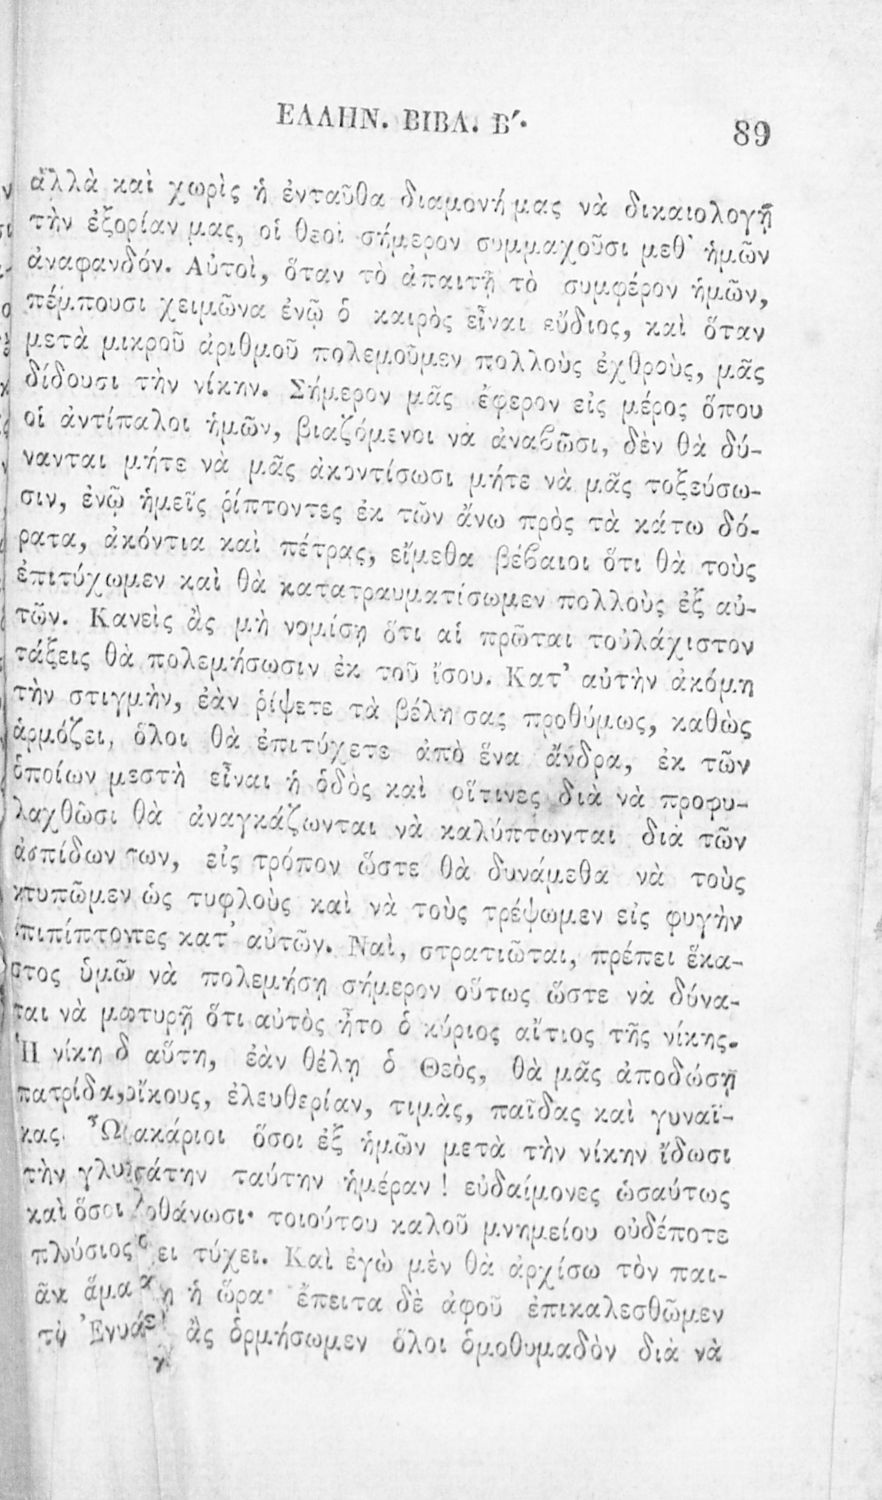 ΕΛΛΗΝ. ΒΙΒΛ. Β΄. 89
ἀλλὰ καὶ χωρὶς ἡ ἐνταῦθα διαμονή μας νὰ δικαιολογῇ
τὴν ἐξορίαν μας, οἱ θεοὶ σήμερον συμμαχοῦσι μεθ᾽ ἡμῶν
ἀναφανδόν. Αὐτοὶ, ὅταν τὸ ἀπαιτῇ τὸ συμφέρον ἡμῶν,
πέμπουσι χειμῶνα ἐνῷ ὁ καιρὸς εἶναι εὔδιος, καὶ ὅταν
μετὰ μικροῦ ἀριθμοῦ πολεμοῦμεν πολλοὺς ἐχθροὺς, μᾶς
δίδουσι τὴν νίκην. Σήμερον μᾶς ἔφερον εἰς μέρος ὅπου
οἱ ἀντίπαλοι ἡμῶν, βιαζόμενοι νὰ ἀναβῶσι, δὲν θὰ δύ-
νανται μήτε νὰ μᾶς ἀκοντίσωσι μήτε νὰ μᾶς τοξεύσω-
σιν, ἐνῷ ἡμεῖς ῥίπτοντες ἐκ τῶν ἄνω πρὸς τὰ κάτω δό-
ρατα, ἀκόντια καὶ πέτρας, εἴμεθα βέβαιοι ὅτι θὰ τοὺς
ἐπιτύχωμεν καὶ θὰ κατατραυματίσωμεν πολλοὺς ἐξ αὐ-
τῶν. Κανεὶς ἂς μὴ νομίσῃ ὅτι αἱ πρῶται τοὐλάχιστον
τάξεις θὰ πολεμήσωσιν ἐκ τοῦ ἴσου. Κατ᾽ αὐτὴν ἀκόμη
τὴν στιγμὴν, ἐὰν ῥίψετε τὰ βέλη σας προθύμως, καθὼς
ἁρμόζει, ὅλοι θὰ ἐπιτύχετε ἀπὸ ἕνα ἄνδρα, ἐκ τῶν
ὁποίων μεστὴ εἶναι ἡ ὁδὸς καὶ οἵτινες διὰ νὰ προφυ-
λαχθῶσι θὰ ἀναγκάζωνται νὰ καλύπτωνται διὰ τῶν
ἀσπίδων των, εἰς τρόπον ὥστε θὰ δυνάμεθα νὰ τοὺς
κτυπῶμεν ὡς τυφλοὺς καὶ νὰ τοὺς τρέψωμεν εἰς φυγὴν
ἐπιπίπτοντες κατ᾽ αὐτῶν. Ναὶ, στρατιῶται, πρέπει ἕκα-
στος ὑμῶν νὰ πολεμήσῃ σήμερον οὕτως ὥστε νὰ δύνα-
ται νὰ μαρτυρῇ ὅτι αὐτὸς ἦτο ὁ κύριος αἴτιος τῆς νίκης.
Ἡ νίκη δ αὕτη, ἐὰν θέλῃ ὁ Θεὸς, θὰ μᾶς ἀποδώσῃ
πατρίδα, οἴκους, ἐλευθερίαν, τιμὰς, παῖδας καὶ γυναῖ-
κας. Ὦ μακάριοι ὅσοι ἐξ ἡμῶν μετὰ τὴν νίκην ἴδωσι
τὴν γλυκυτάτην ταύτην ἡμέραν ! εὐδαίμονες ὡσαύτως
καὶ ὅσοι ἀποθάνωσι· τοιούτου καλοῦ μνημείου οὐδέποτε
πλούσιος τύχει. Καὶ ἐγὼ μὲν θὰ ἀρχίσω τὸν παι-
ᾶνα ἅμα ἡ ὥρα· ἔπειτα δὲ ἀφοῦ ἐπικαλεσθῶμεν
τὸν Ἐνυάλ ἂς ὁρμήσωμεν ὅλοι ὁμοθυμαδὸν διὰ νὰ